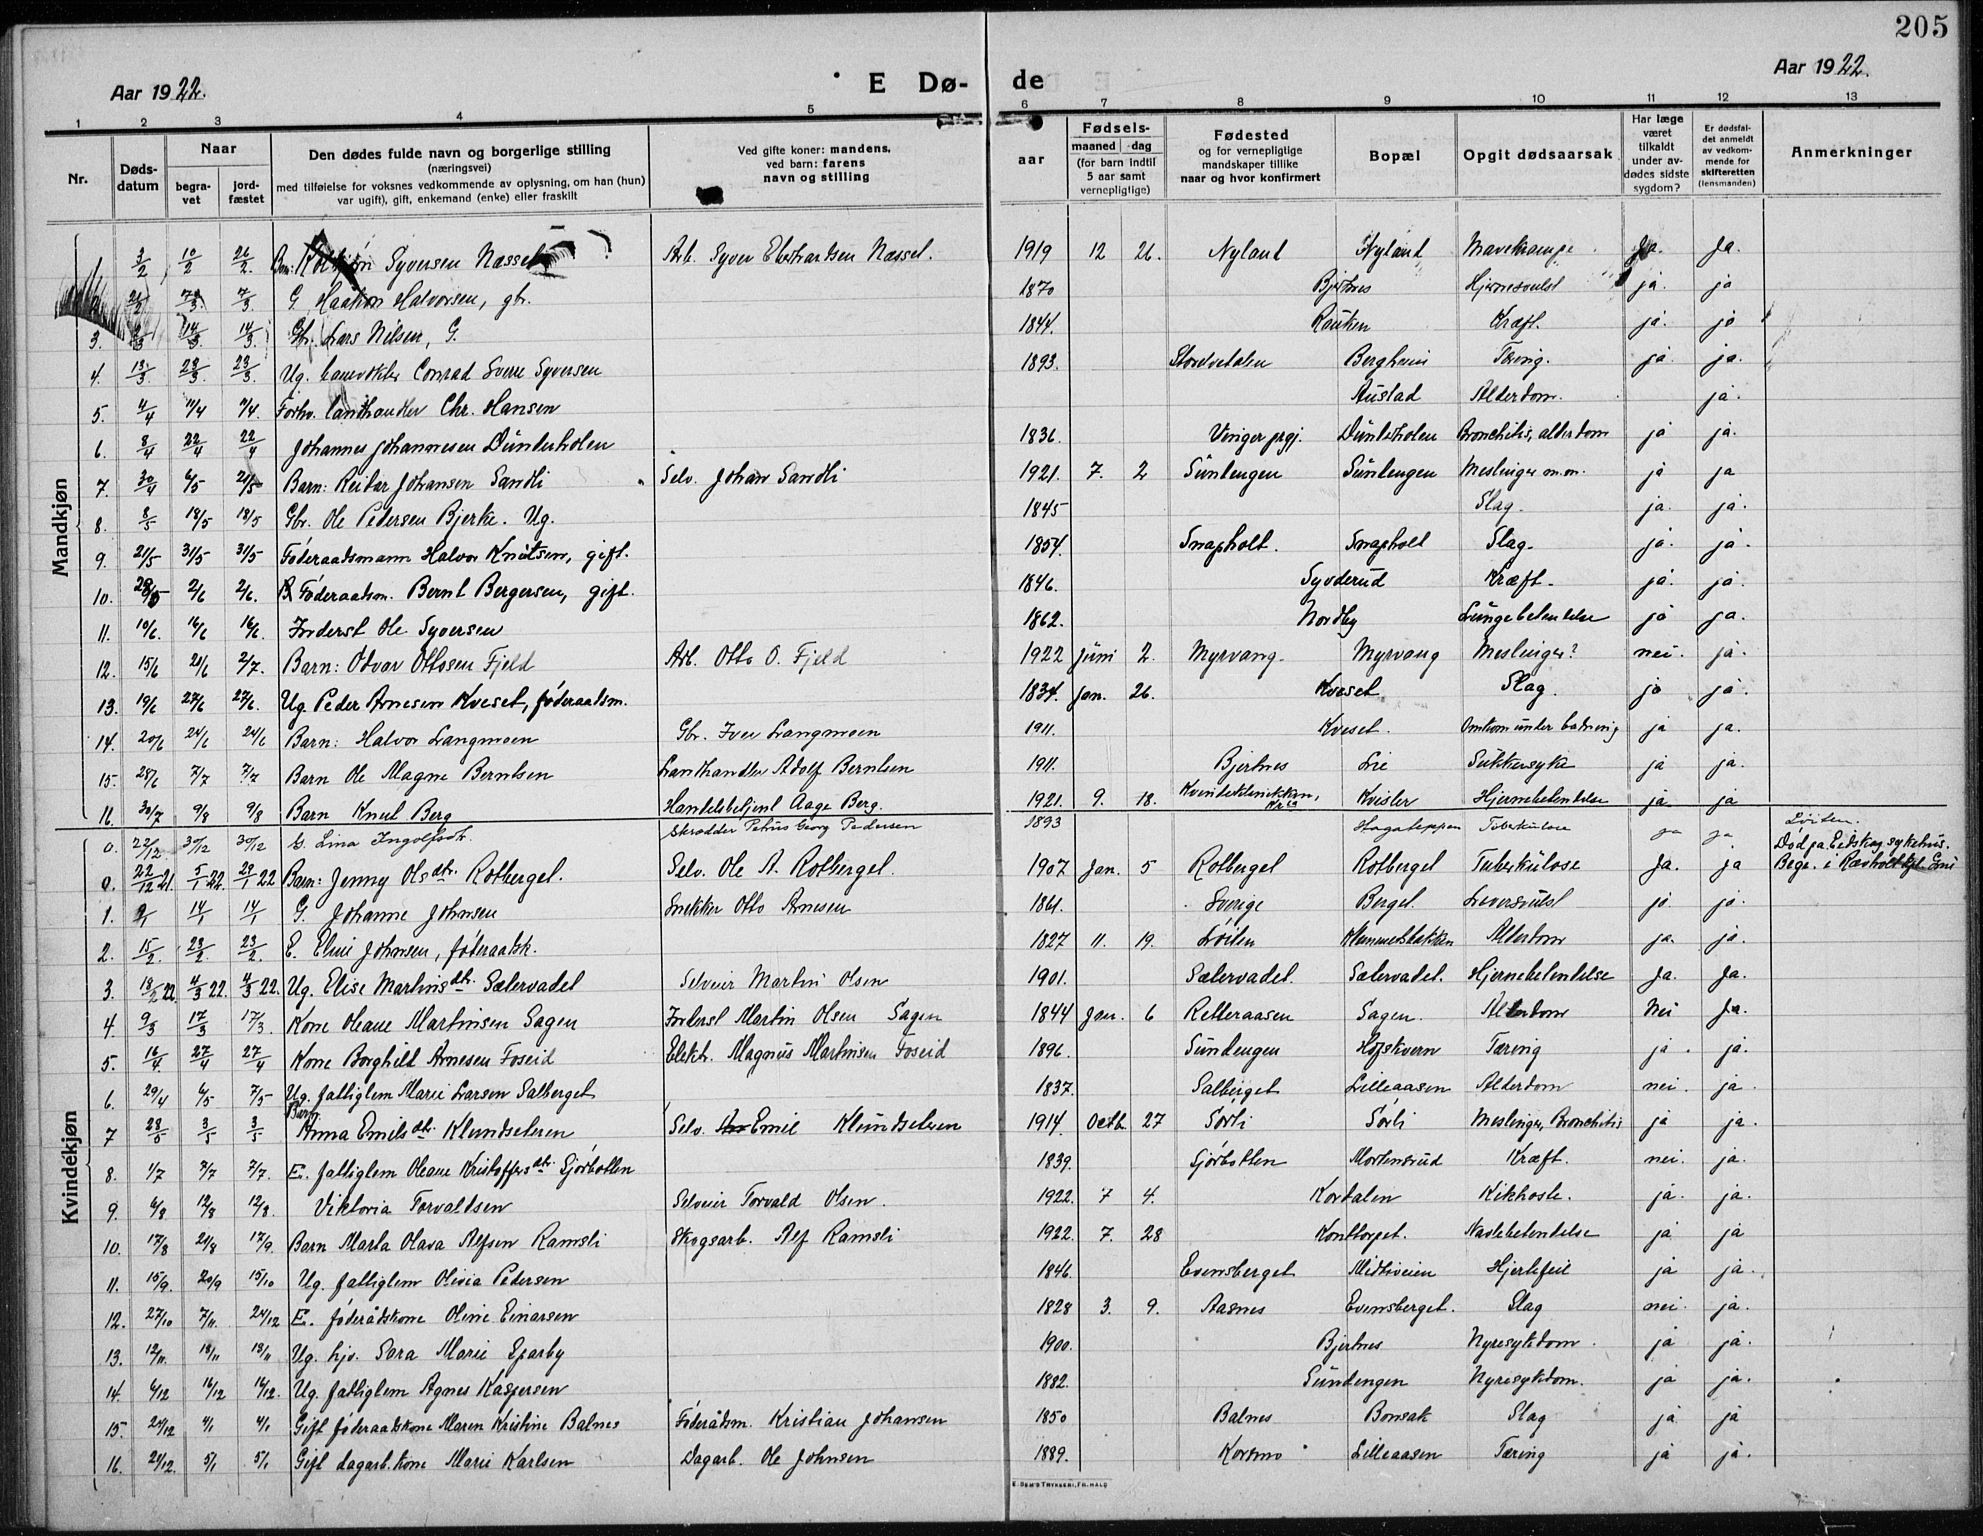 205
Aar 1922.
E Dø-
de
Aar 1922.
1 2 3 4 5 6 7 8 9 10 11 12 13
Nr.
Døds-
datum
Naar
begra-
vet
jord-
fæstet
Den dødes fulde navn og borgerlige stilling
(næringsvei)
med tilføielse for voksnes vedkommende av oplysning, om han (hun)
var ugift), gift, enkemand (enke) eller fraskilt
Ved gifte koner: mandens,
ved barn: farens
navn og stilling
aar
Fødsels-
maaned dag
(for barn indtil
5 aar samt
vernepligtige)
Fødested
og for vernepligtige
mandskaper tillike
naar og hvor konfirmert
Bopæl
Opgit dødsaarsak
Har læge
været
tilkaldt
under av-
dødes sidste
sygdom?
Er dødsfal-
det anmeldt
av vedkom-
mende for
skifteretten
(lensmanden)
Anmerkninger
Mandkjøn
3/2 10/2 26/2. Syversen Næsset Arb. Syver Næsset. 1919 12 26. Nyland Nyland Mavekrampe Ja. Ja.
7/3 G Haakon Halvorsen, gbr. 1870 Bjertnes Hjernesvulst ja ja
3. 14/3 14/3. Gbr. Lars Nilsen, G. 1844. Rauken Kræft. ja. ja
4. 13/3 23/3. 23/3. Ug. Conrad Sverre Syversen 1893. Bergheim Tæring. ja ja.
5. 4/4 11/4 Forhv. landhandler Chr. Hansen Austad Alderdom. ja.
6. 8/4 22/4 22/4 Johannes Johannesen Dunderholen 1836. Vinger prgj. Dunderholen Bronchitis, alderdom ja ja.
7. 30/4 6/5 21/5 Barn: Reidar Johansen Sandli Selv. Johan Sandli 1921. 7. 2 Sundengen Sundengen Meslinger m.m. ja ja
8. 8/5 18/5 18/5 Gbr. Ole Pedersen Bjerke. Ug. 1845 Slag. ja. ja.
9. 21/5 31/5 31/5 Føderaadsmann Halvor Knutsen, gift. 1854. Snapholt. Snapholt Slag. ja. ja.
10. 2/6 2/6. Føderaadsm. Bernt Bergersen, gift. 1846. Syverud Kræft. ja. ja.
11. 10/6. 16/6 16/6. Inderst Ole Syversen 1862. Nordby Lungebetendelse ja ja.
12. 15/6 20/6 2/7. Barn: Odvar Ottosen Fjeld Arb. Otto O. Fjeld 1922 Juni 2. Myrvang. Myrvang Meslinger? nei. ja.
13. 19/6 27/6 27/6. Ug. Peder Arnesen Kveset, føderaadsm. 1834. Jan. 26. Kveset Slag. ja ja.
14. 20/6 24/6 24/6 Barn: Halvor Langmoen Gbr. Iver Langmoen 1911. Kveset. Omkom under badning ja ja.
15. 28/6 7/7 7/7 Barn Ole Magne Berntsen Landhandler Adolf Berntsen 1911. Bjertnes Lie Sukkersyke ja ja.
16. 30/7 9/8 9/8 Barn Knut Berg Handelsbetjent Aage Berg. 1921. 9. 18. Kvindeklinikken, Kr.ia Kvisler Hjernebetendelse ja ja
Kvindekjøn
0. 22/12 30/12 30/12 G. Lina Ingolfsdtr. Skrædder Petrus Georg Pedersen 1893 Hagateppen Tuberkulose ja ja
Løiten.
Død paa Eidskog sykehus.
0. 22/12 21. 5/1 22. 29/1 22 Barn: Jenny Olsdtr. Rotberget. Selv. Ole A. Rotberget. 1907 Jan. 5 Rotberget Rotberget Tuberkulose Ja. ja Begr. i
1. 14/1 14/1 G. Johanne Johnsen Snekker Otto Arnesen 1861. Sverige Berget. Leversvulst ja ja.
2. 15/2. 23/2 23/2. E. Eline Johnsen, føderaadsk. 1827 11. 19. Løiten Klemmetsbakken Alderdom ja. ja.
3. 18/2 22. 4/3 22. 4/3 22. Ug. Elise Martinsdtr. Sælervadet Selveier Martin Olsen 1901. Sælervadet. Sælervadet. Hjernebetendelse Ja. Ja.
4. 9/3 17/3 17/3 Kone Oleane Martinsen Sagen Inderst Martin Olsen Sagen 1844 Jan. 6 Retteraasen Sagen. Alderdom Nei Ja.
5. 16/4. 27/4 27/4 Kone Borghild Arnesen Foseid Elektr. Magnus Martinsen Foseid 1896. Sundengen Hofskvern Tæring ja. ja.
6. 29/4 6/5 7/5 Ug. fattiglem Marie Larsen Salberget 1837. Salberget Lilleaasen Alderdom nei. ja.
7 28/5 3/5 3/5 Barn Anna Emilsdtr. Klundseteren Selv. Emil Klundseteren 1914. Octb. 27 Sørli Sørli Meslinger, Bronchitis ja ja.
8. 1/7 7/7 7/7. E. fattiglem Oleane Kristoffersdtr. Sjørbotten 1839. Sjørbotten Mortensrud Kræft. nei. ja.
9. 6/8 12/8 12/8. Viktoria Torvaldsen Selveier Torvald Olsen. 1922. 7 4. Kordalen Kikhoste. ja. ja.
10. 17/8 21/8 17/9. Barn Marta Olava Alfsen Ramsli Skogsarb. Alf Ramsli 1922. 7. 28 Konttorpet. Navlebetendelse ja ja
11. 15/9. 20/9 15/10 Ug. fattiglem Olivia Pedersen 1846. Evensberget Midtiveien Hjertefeil ja ja.
12. 27/10 7/11. 24/12 E. føderådskone Oline Einarsen 1828 3. 9. Aasnes Evensberget. Slag nei. ja.
13. 12/11. 18/11 18/11 Ug. hjv. Sara Marie Sparby 1900. Bjertnes Nyresykdom. ja ja.
14. 6/12 16/12 16/12. Ug. fattiglem Agnes Kaspersen 1882. Sundengen Nyresykdom. ja ja.
15. 24/12 4/1 4/1 Gift føderaadskone Maren Kristine Balnes Føderådsm. Kristian Johansen 1850 Balnes Bonsak Slag ja ja
16. 24/12. 5/1 5/1 Gift dagarb. kone Marie Karlsen Dagarb. Ole Johnsen 1889. Kordmo Lilleaasen Tæring ja ja.
E. SEM'S TRYKKERI, FR.HALD